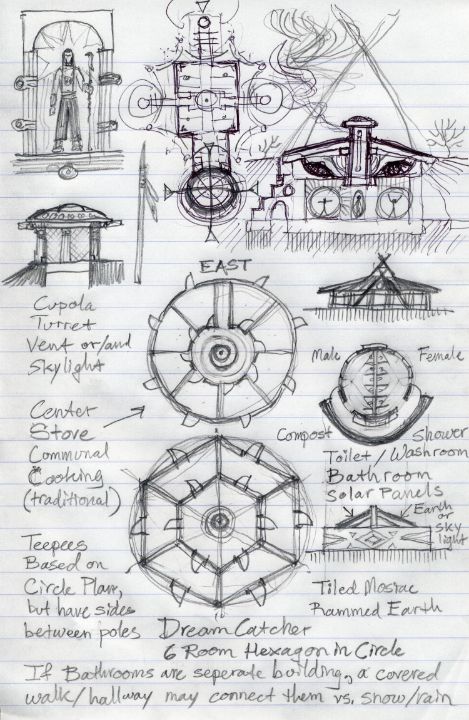 EAST
Cupola
Turret
Vent or/and
Skylight
Male
Female
Center
Stove
Communal
Cooking
(traditional)
Compost
Shower
Toilet/Washroom
Bathroom
Solar Panels
Earth
or sky
light
Teepees
Based on
Circle Plan,
but have sides
between poles
Tiled Mosiac
Rammed Earth
Dream Catcher
6 Room Hexagon in Circle
If Bathrooms are seperate building, a covered
walk/hallway may connect them vs. snow/rain